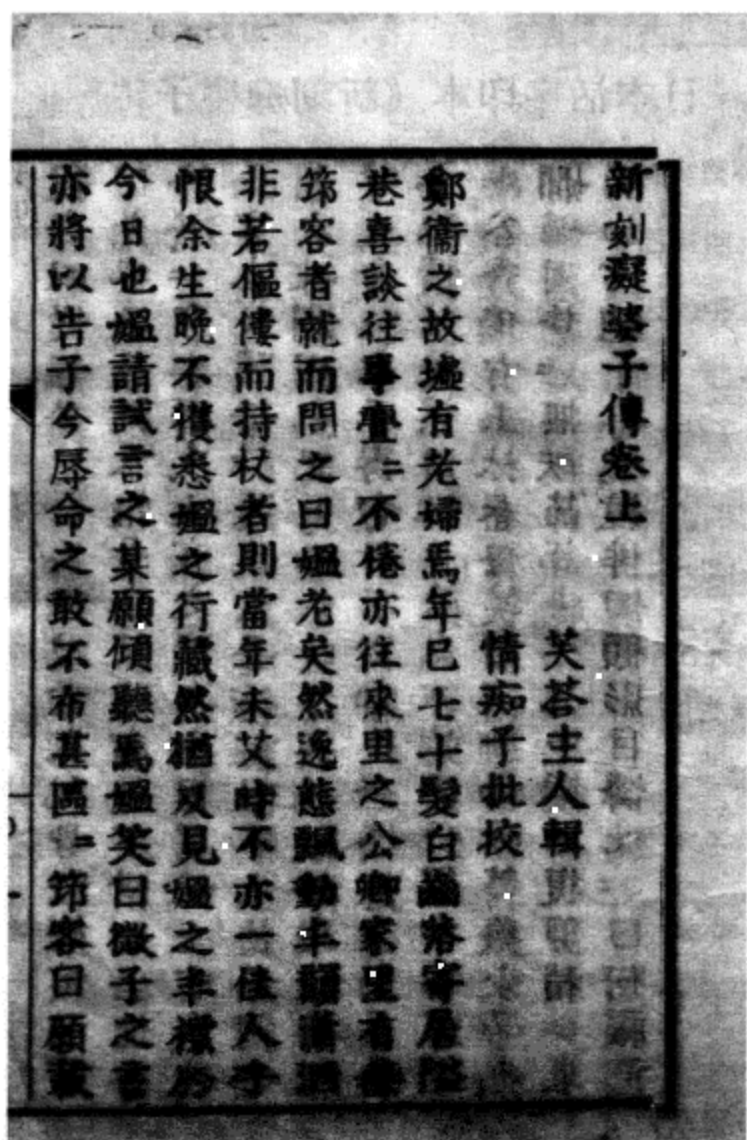 新刻癡婆子傳卷上
芙蓉主人輯
情痴子批挍
鄭衞之故墟有老婦焉年已七十髮白齒落寄居隘
巷喜談往事亹〻不倦亦往來里之公卿家里有
筇客者就而問之曰媼老矣然逸態飄動丰韻瀟洒
非若傴僂而持杖者則當年未艾時不亦一佳人乎
恨余生晚不獲悉媼之行藏然猶及見媼之丰襟於
今日也媼請試言之某願傾聽焉媼笑曰微子之言
亦將以告子今辱命之敢不布甚區〻筇客曰願